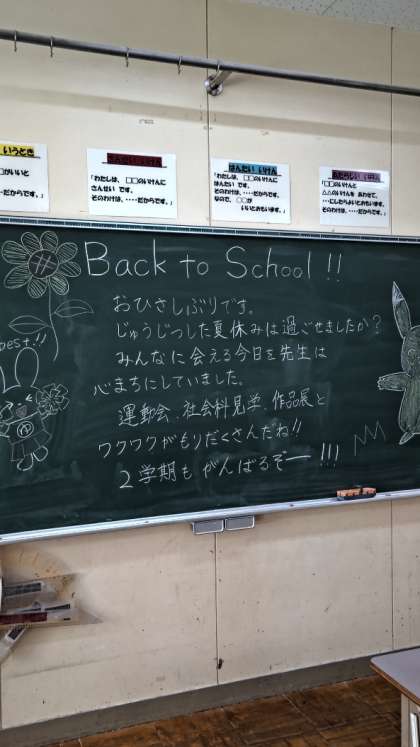 いうとき
□がいいと
‥だからです。
さんせい いけん
「わたしは、□□のいけんに
さんせい です。
そのわけは、‥‥だからです。」
はんたい いけん
「わたしは、□□のいけんに
はんたい です。
そのわけは、‥‥だからです。
なので、 ○○が
いいとおもいます。」
あたらしい いけん
「□□のいけんと
△△のいけんを あわせて、
‥‥にしたらよいとおもいます。
そのわけは、‥‥だからです。」
Back to School!!
おひさしぶりです。
じゅうじつした夏休みは過ごせましたか?
みんなに会える今日を先生は
心まちにしていました。
運動会、社会科見学、作品展と
ワクワクがもりだくさんだね!!
2学期も がんばるぞー!!!
best!!